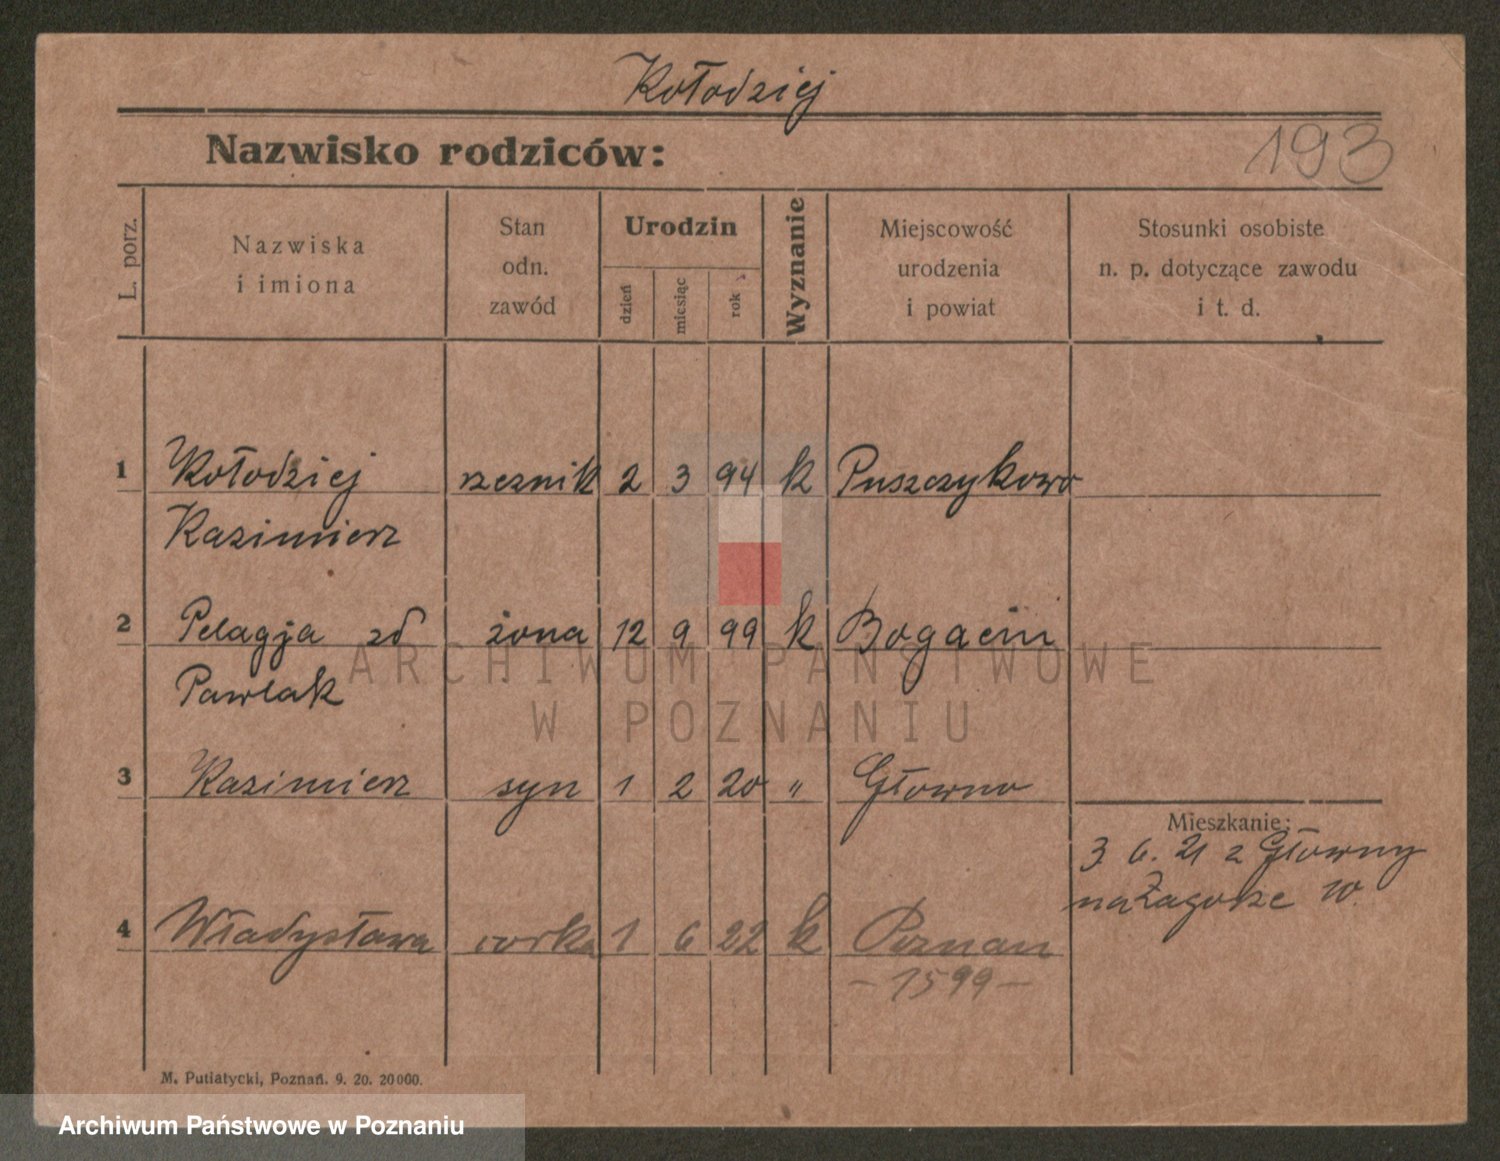 Kołodziej
Nazwisko rodziców:
193
L. porz.
Nazwiska
i imiona
Stan
odn.
zawód
Urodzin
dzień
miesiąc
rok
Wyznanie
Miejscowość
urodzenia
i powiat
Stosunki osobiste
n. p. dotyczące zawodu
i t. d.
1 Kołodziej rzeznik 2 3 94 k Puszczykowo
Kazimierz
2 Pelagja zd żona 12 9 99 k
Pawlak
3 Kazimierz syn 1 2 20 " Główno
Mieszkanie:
3 6. 21 z Główny
na Zagorze 10.
4 Władysława corka 1 6 22 k Poznan
- 1599 -
M. Putiatycki, Poznań. 9. 20. 20000.
ARCHIWUM PAŃSTWOWE
W POZNANIU
Archiwum Państwowe w Poznaniu